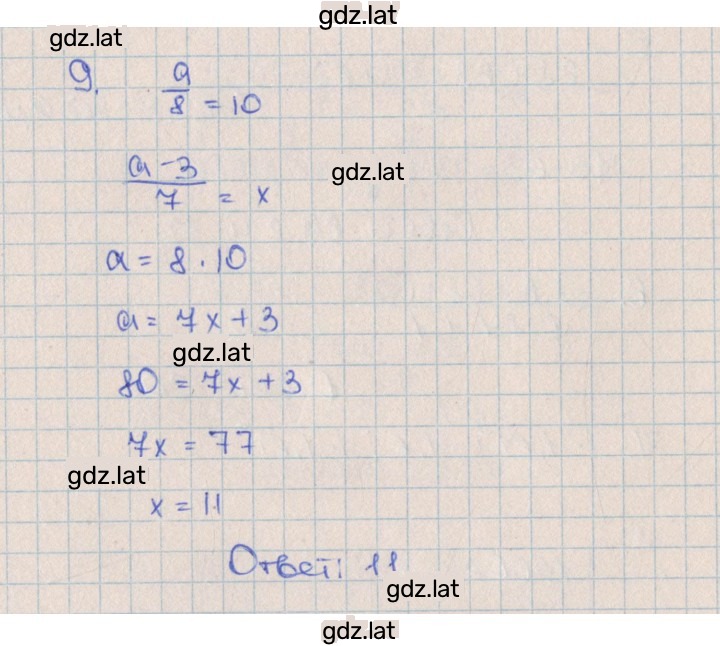 gdz.lat
gdz.lat
9. a/8 = 10
(a-3)/7 = x
gdz.lat
a = 8 · 10
a = 7x + 3
gdz.lat
80 = 7x + 3
7x = 77
gdz.lat
x = 11
Ответ: 11
gdz.lat
gdz.lat